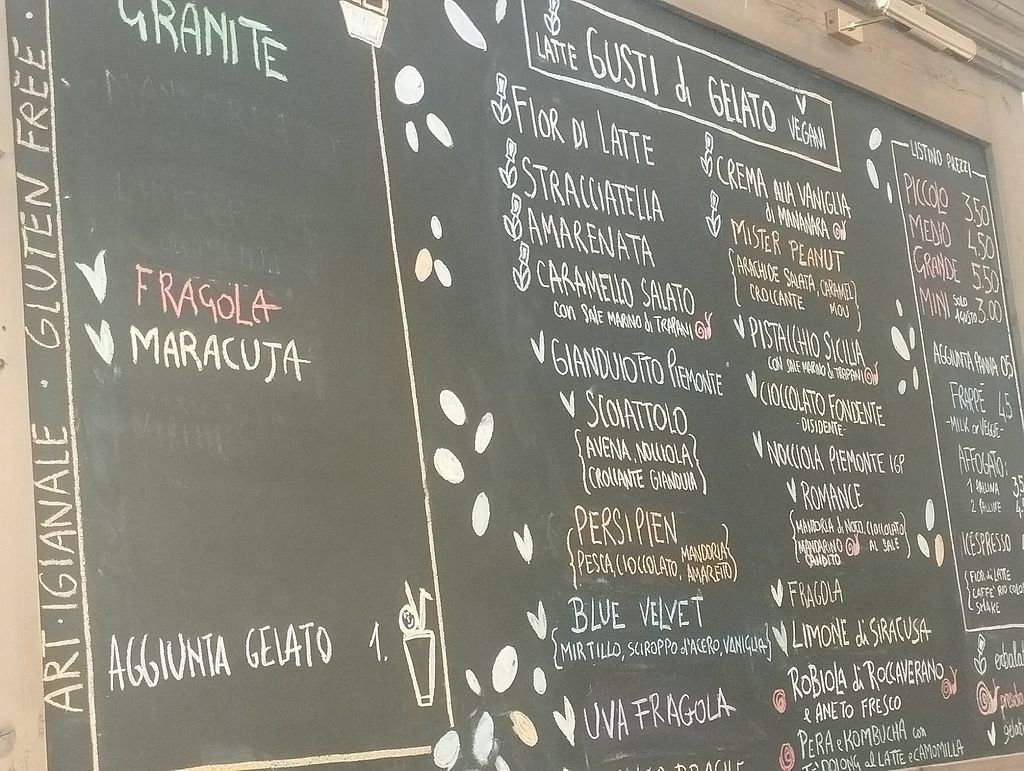 ARTIGIANALE · GLUTEN FREE ·
GRANITE
FRAGOLA
MARACUJA
AGGIUNTA GELATO 1.
LATTE GUSTI di GELATO VEGANI
FIOR DI LATTE
STRACCIATELLA
AMARENATA
CARAMELLO SALATO
con SALE MARINO di TRAPANI
GIANDUIOTTO PIEMONTE
SCOIATTOLO
AVENA, NOCCIOLA
CROCCANTE GIANDUIA
PERSIPIEN
PESCA, CIOCCOLATO, MANDORLA
AMARETTO
BLUE VELVET
MIRTILLO, SCIROPPO d'ACERO, VANIGLIA
UVA FRAGOLA
CREMA alla VANIGLIA
di MANANARA
MISTER PEANUT
ARACHIDE SALATA, CARAMEL
CROCCANTE MOU
PISTACCHIO SICILIA
CON SALE MARINO di TRAPANI
CIOCCOLATO FONDENTE
-DISIDENTE-
NOCCIOLA PIEMONTE IGP
ROMANCE
MANDORLA di NOTO, CIOCCOLATO
MANDARINO AL SALE
CANDITO
FRAGOLA
LIMONE di SIRACUSA
ROBIOLA di ROCCAVERANO
e ANETO FRESCO
PERA e KOMBUCHA con
al LATTE e CAMOMILLA
LISTINO PREZZI
PICCOLO 3,50
MEDIO 4,50
GRANDE 5,50
MINI SOLO 1 GUSTO 3.00
AGGIUNTA PANNA 05
FRAPPÈ 4,5
-MILK or VEGGIE-
AFFOGATO:
1 PALLINA
2 PALLINE
ICESPRESSO
FIOR di LATTE
CAFFE BIO
SHAKE